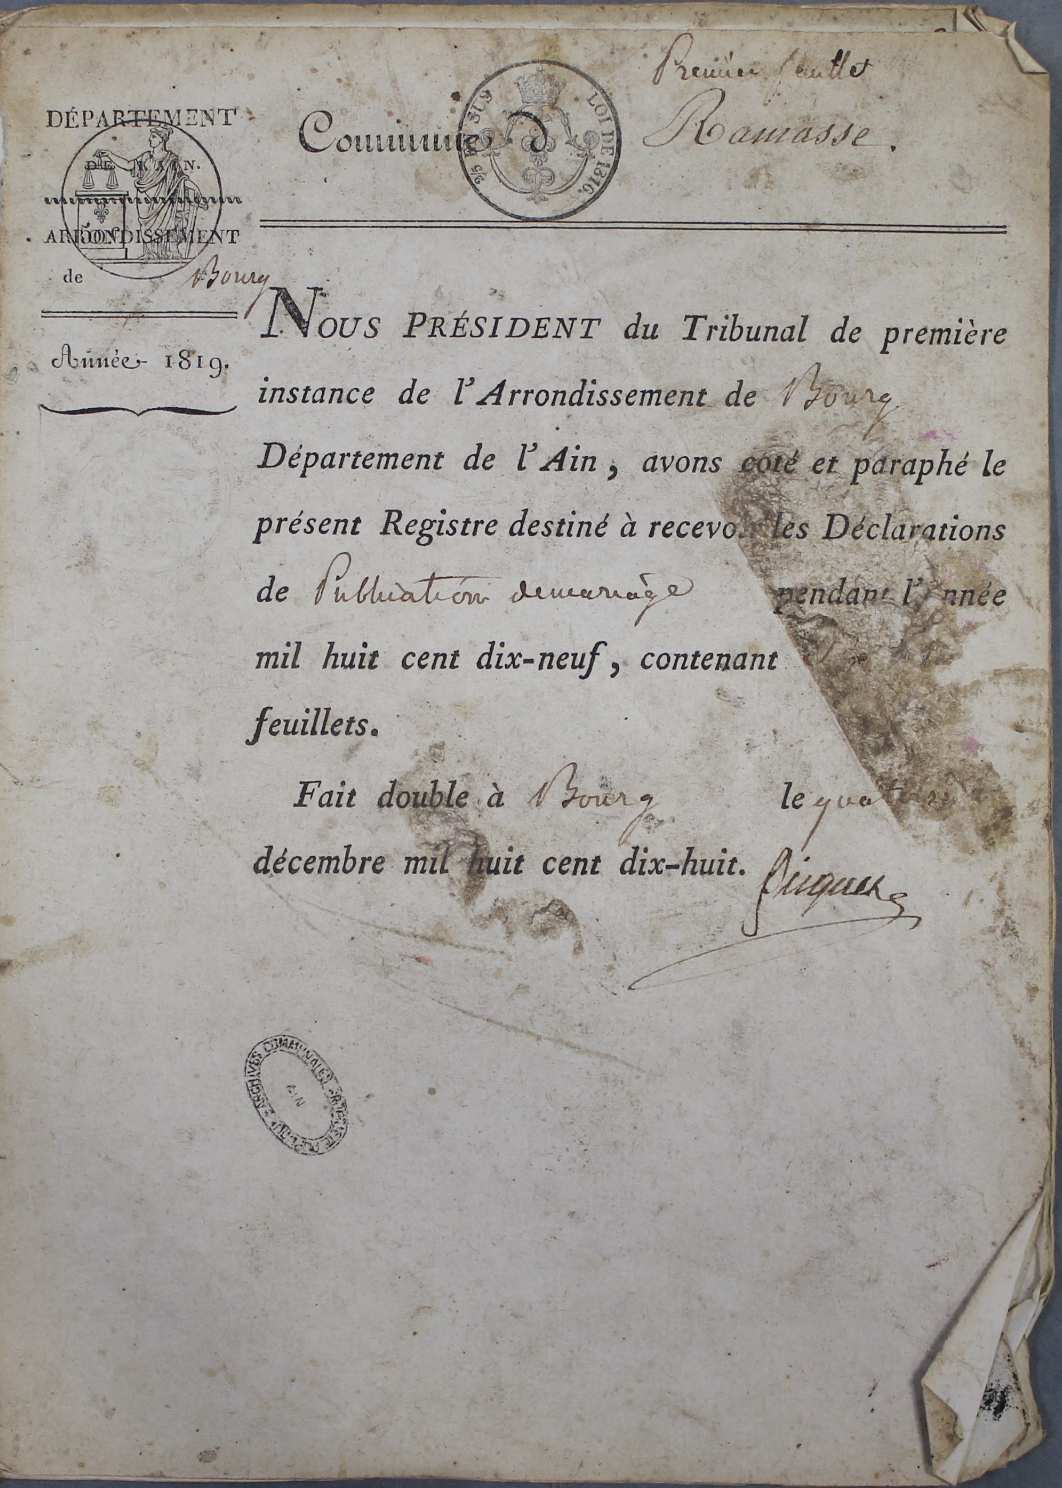 Premier feuillet
DÉPARTEMENT
DE L'AIN.
ARRONDISSEMENT
de Bourg
Année 1819.
Commune d Ramasse.
25 EN SUS
LOI DE 1816.
NOUS PRÉSIDENT du Tribunal de première
instance de l'Arrondissement de Bourg
Département de l'Ain, avons coté et paraphé le
présent Registre destiné à recevoir les Déclarations
de Publication de mariage pendant l'Année
mil huit cent dix-neuf, contenant
feuillets.
Fait double à Bourg le
décembre mil huit cent dix-huit.
ARCHIVES COMMUNALES
AIN